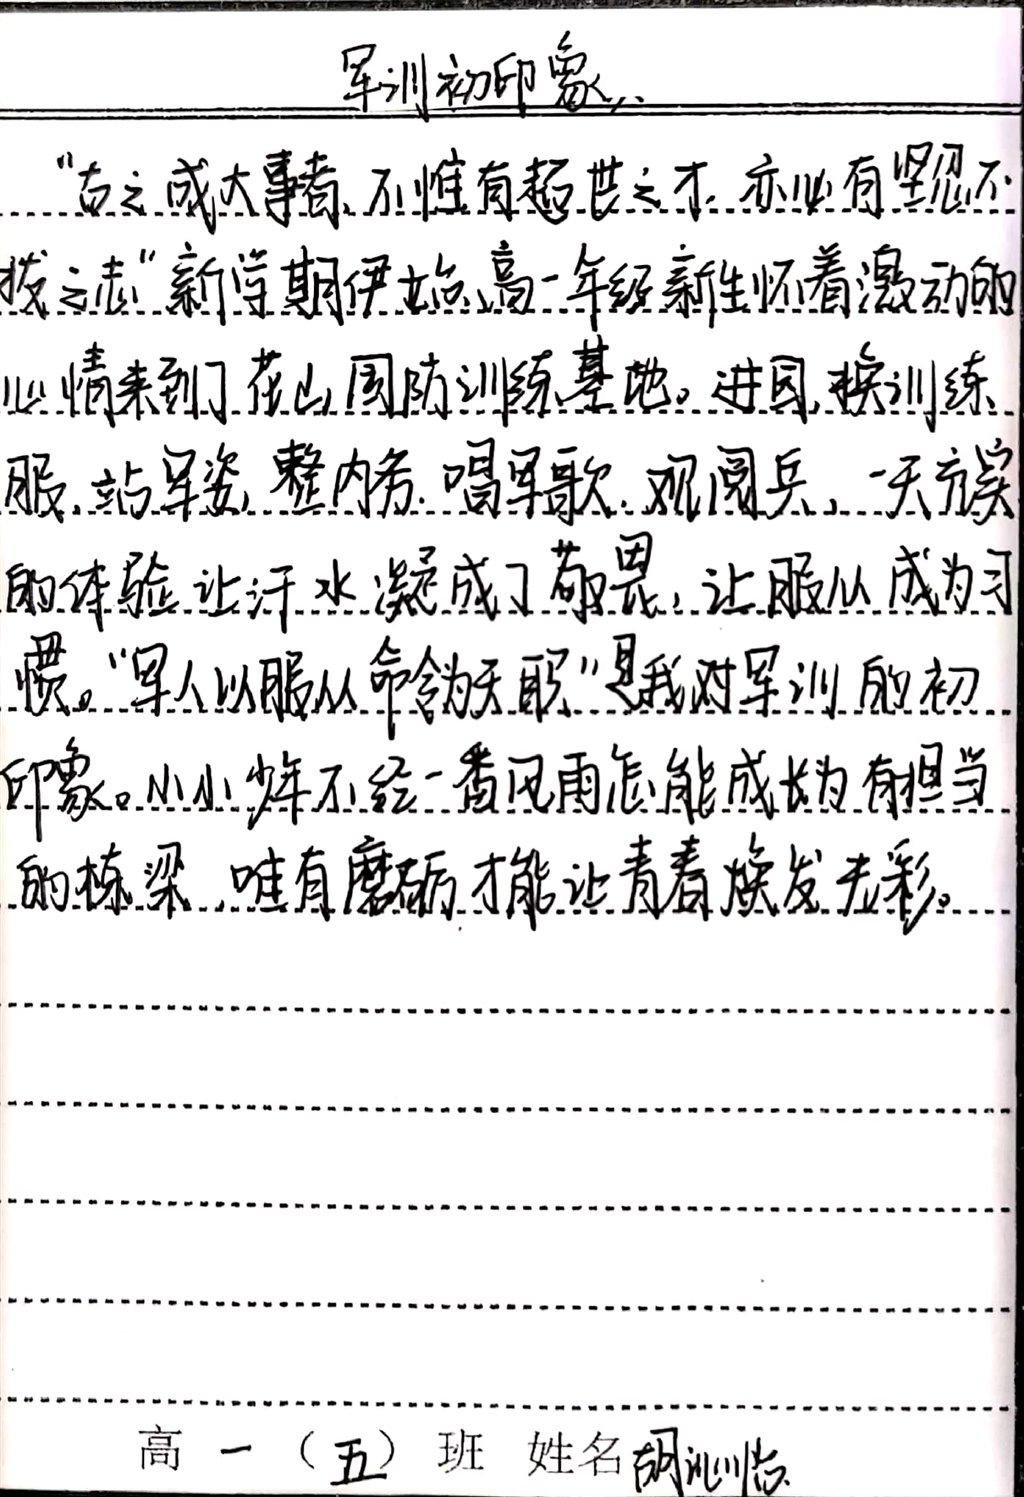 军训初印象
“古之成大事者、不惟有超世之才、亦必有坚忍不
拔之志”新学期伊始、高一年级新生怀着激动的
心情来到了花山国防训练基地。进园、换训练
服、站军姿、整内务、唱军歌、观阅兵、一天充实
的体验让汗水凝成了敬畏，让服从成为习
惯。“军人以服从命令为天职”是我对军训的初
印象。小小少年不经一番风雨怎能成长为有担当
的栋梁，唯有磨砺才能让青春焕发光彩。
高一（五）班 姓名 胡